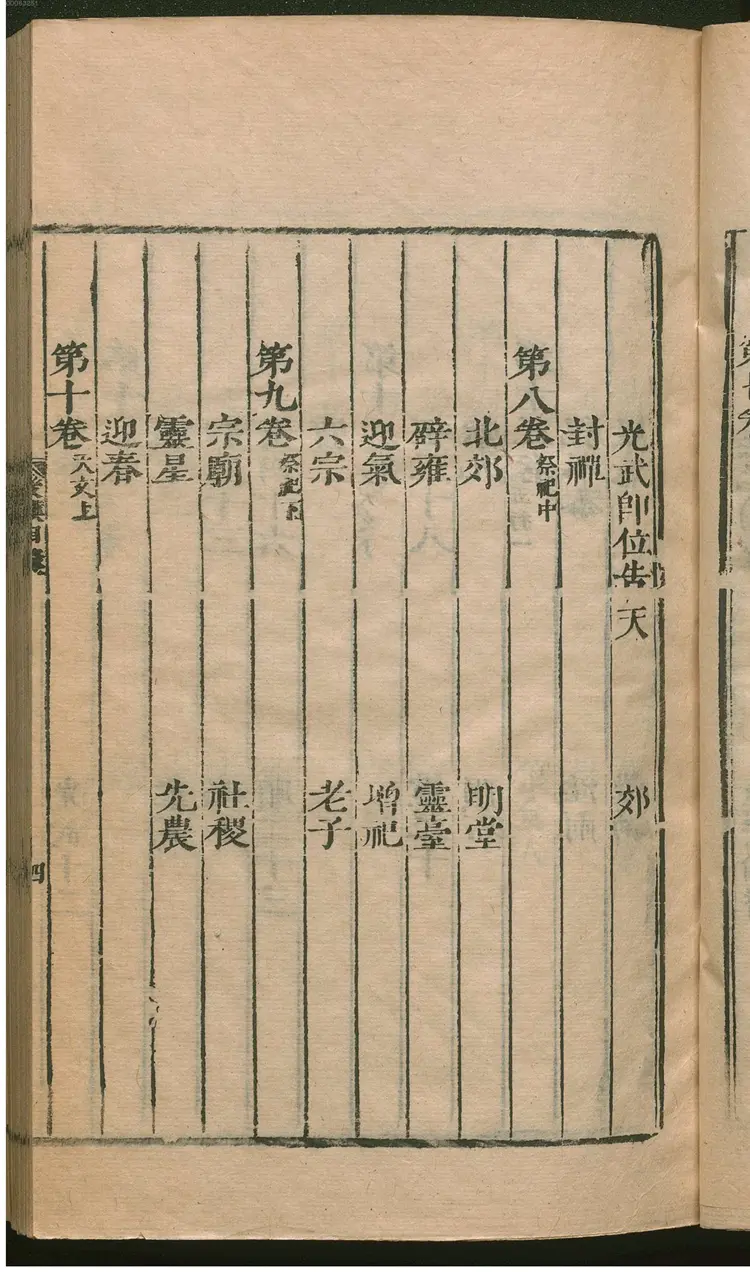 光武即位告天　郊
封禪
第八卷 祭祀中
北郊　明堂
辟雍　靈臺
迎氣　增祀
六宗　老子
第九卷 祭祀下
宗廟　社稷
靈星　先農
迎春
第十卷 天文上
後漢目錄
四
00093251